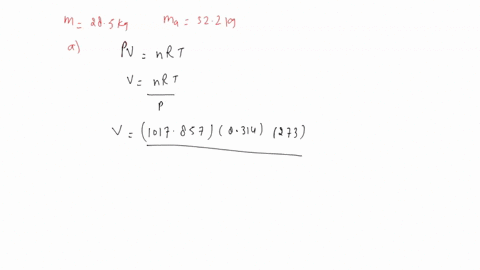 m = 28.5 kg   ma = 32.2 kg
a) PV = nRT
V = nRT
P
V = (1017.857)(0.314)(273)